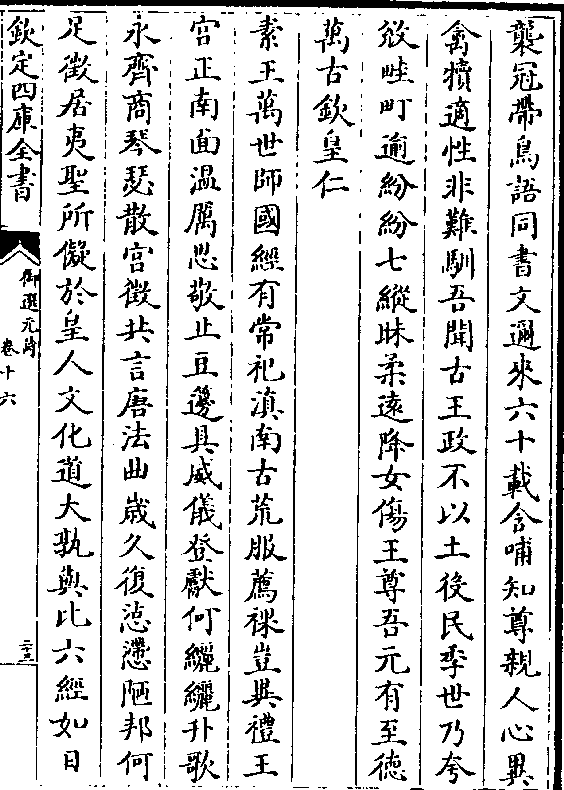 襲冠帶鳥語同書文邇來六十載含哺知尊親人心異
禽犢適性非難馴吾聞古王政不以土役民季世乃夸
毀畦町逾紛紛七縱昧柔遠降女傷王尊吾元有至德
萬古欽皇仁
素王萬世師國經有常祀滇南古荒服薦祼豈典禮王
宮正南面温厲思敬止豆籩具威儀登獻何纚纚升歌
永齊商琴瑟散宮徵共言唐法曲歲久復惉懘陋邦何
足徵居夷聖所儗於皇人文化道大孰與比六經如日
欽定四庫全書
御選元詩
卷十六
二十三